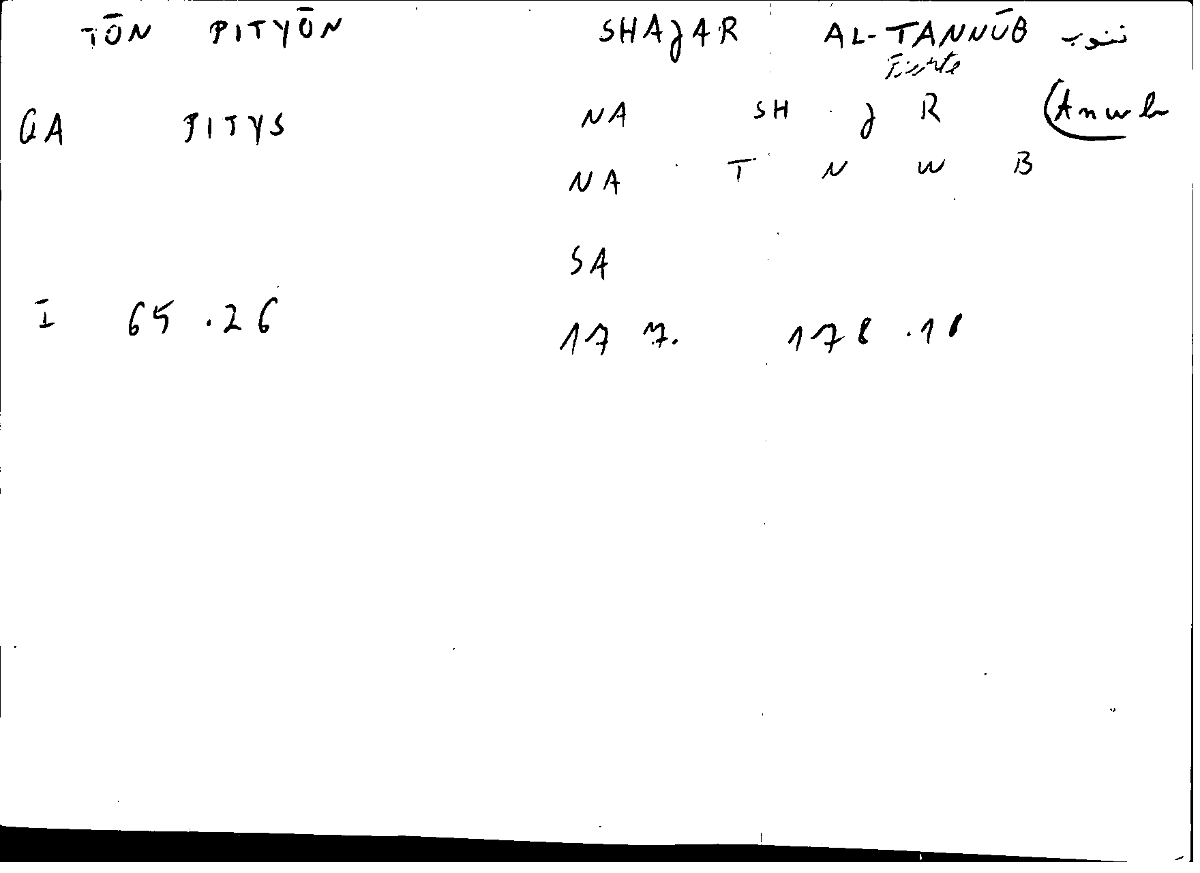 TŌN PITYŌN SHAJAR AL-TANNŪB تنوب
Fichte
GA PITYS NA SH J R
NA T N W B
SA
I 65.26 177. 178.18